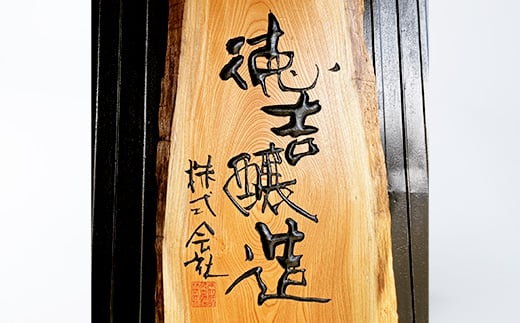 徳吉醸造
株式会社